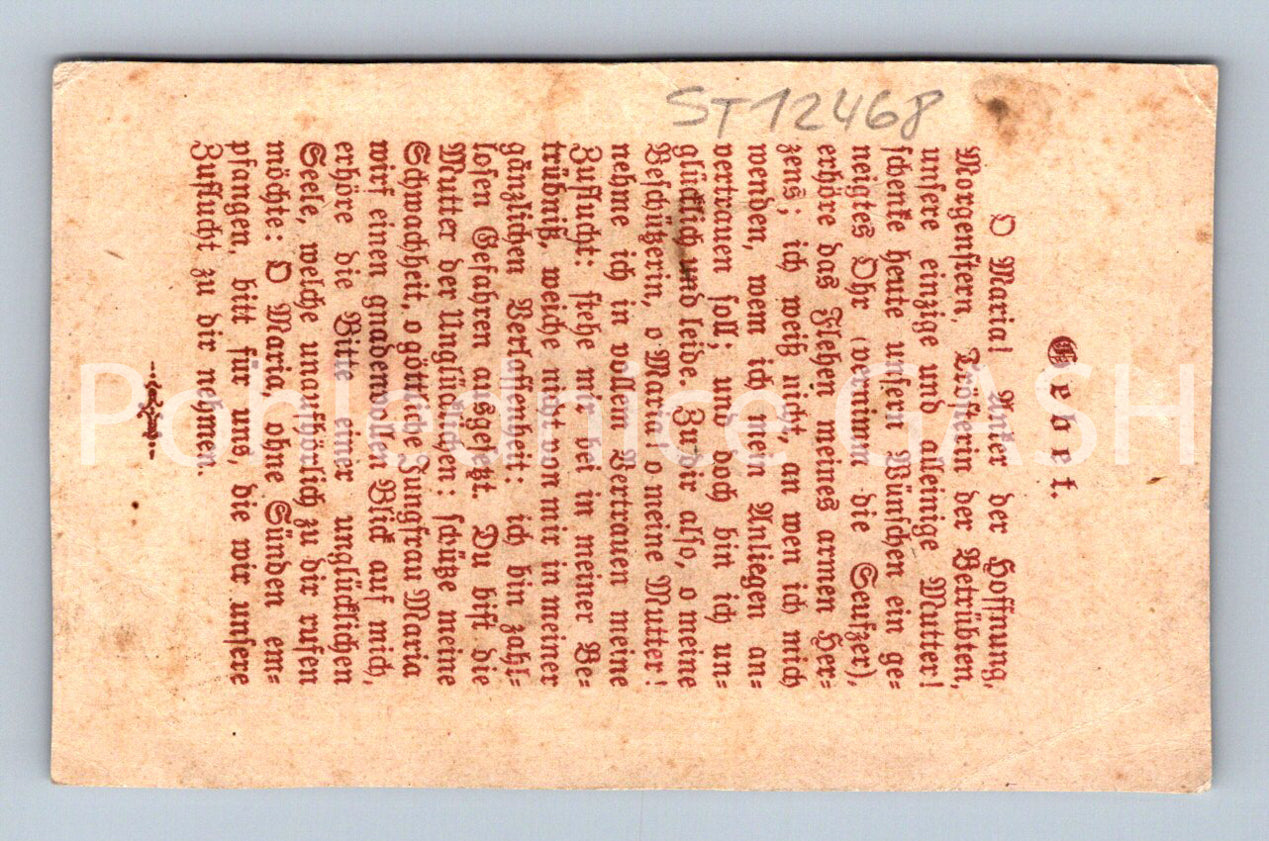 ST12468
Gebet.
O Maria! Anker der Hoffnung,
Morgenstern, Trösterin der Betrübten,
unsere einzige und alleinige Mutter!
schenke heute unsern Wünschen ein ge-
neigtes Ohr (vernimm die Seufzer),
erhöre das Flehen meines armen Her-
zens; ich weiß nicht, an wen ich mich
wenden, wem ich mein Anliegen an-
vertrauen soll; und doch bin ich un-
glücklich und leide. Zu dir also, o meine
Beschützerin, o Maria! o meine Mutter!
nehme ich in vollem Vertrauen meine
Zuflucht: stehe mir bei in meiner Be-
trübniß, weiche nicht von mir in meiner
gänzlichen Verlassenheit: ich bin zahl-
losen Gefahren ausgesetzt. Du bist die
Mutter der Unglücklichen: schütze meine
Schwachheit, o göttliche Jungfrau Maria
wirf einen gnadenvollen Blick auf mich,
erhöre die Bitte einer unglücklichen
Seele, welche unaufhörlich zu dir rufen
möchte: O Maria, ohne Sünden em-
pfangen, bitt für uns, die wir unsere
Zuflucht zu dir nehmen.
Pohlednice GASH